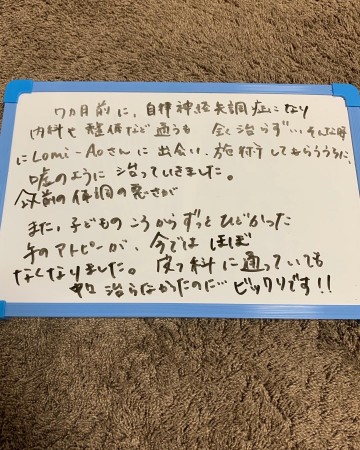 7ヵ月前に、自律神経失調症になり
内科や整体など通うも 全く治らず…そんな時
にLomi-Aoさんに出会い、施術してもらううちに、
嘘のように治っていきました。
以前の体調の悪さが
また、子どものころからずっとひどかった
手のアトピーが、今では ほぼ
なくなりました。皮フ科に通っていても
治らなかったのに… ビックリです!!